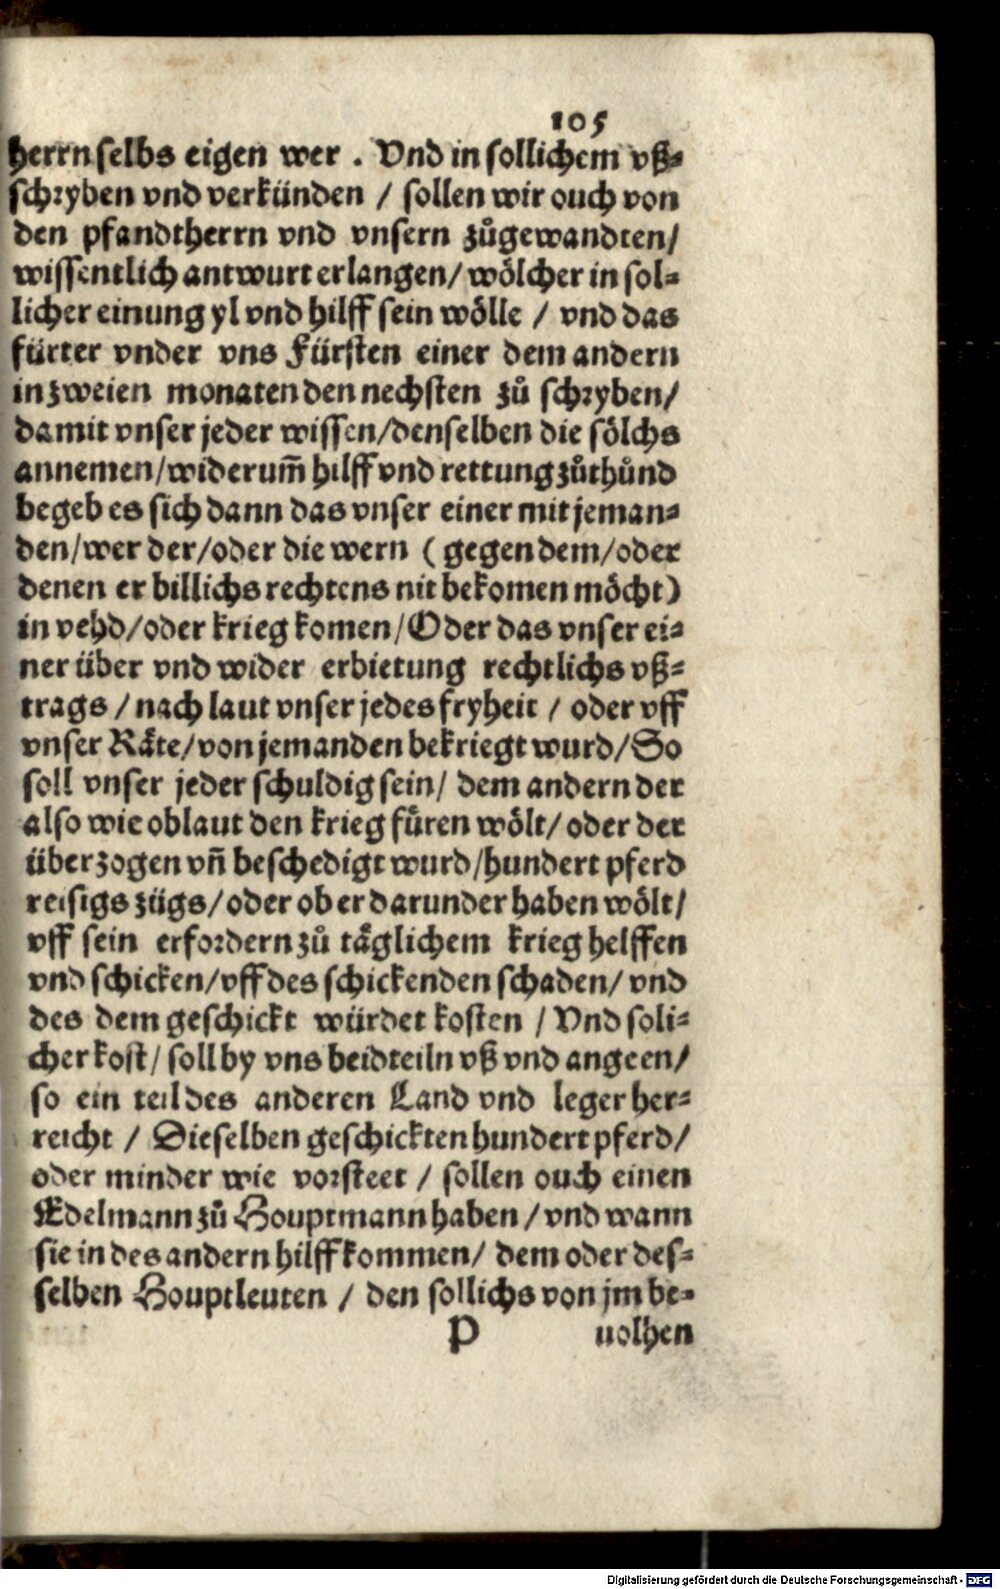 105
herrn selbs eigen wer . Vnd in sollichem vß⸗
schryben vnd verkünden / sollen wir ouch von
den pfandtherrn vnd vnsern zůgewandten/
wissentlich antwurt erlangen/ wölcher in sol⸗
licher einung yl vnd hilff sein wölle / vnd das
fürter vnder vns Fürsten einer dem andern
in zweien monaten den nechsten zů schryben/
damit vnser jeder wissen/denselben die sölchs
annemen/widerum̄ hilff vnd rettung zůthůnd
begeb es sich dann das vnser einer mit jeman⸗
den/wer der/oder die wern ( gegen dem/oder
denen er billichs rechtens nit bekomen möcht)
in vehd/oder krieg komen/Oder das vnser ei⸗
ner über vnd wider erbietung rechtlichs vß⸗
trags / nach laut vnser jedes fryheit / oder vff
vnser Räte/von jemanden bekriegt wurd/So
soll vnser jeder schuldig sein/ dem andern der
also wie oblaut den krieg füren wölt/ oder der
überzogen vn̄ beschedigt wurd/hundert pferd
reisigs zügs/oder ob er darunder haben wölt/
vff sein erfordern zů täglichem krieg helffen
vnd schicken/vff des schickenden schaden/ vnd
des dem geschickt würdet kosten / Vnd soli⸗
cher kost/ soll by vns beidteiln vß vnd angeen/
so ein teil des anderen Land vnd leger her⸗
reicht / Dieselben geschickten hundert pferd/
oder minder wie vorsteet / sollen ouch einen
Edelmann zů Houptmann haben / vnd wann
sie in des andern hilff kommen/ dem oder des⸗
selben Houptleuten / den sollichs von jm be⸗
P uolhen
Digitalisierung gefördert durch die Deutsche Forschungsgemeinschaft - DFG